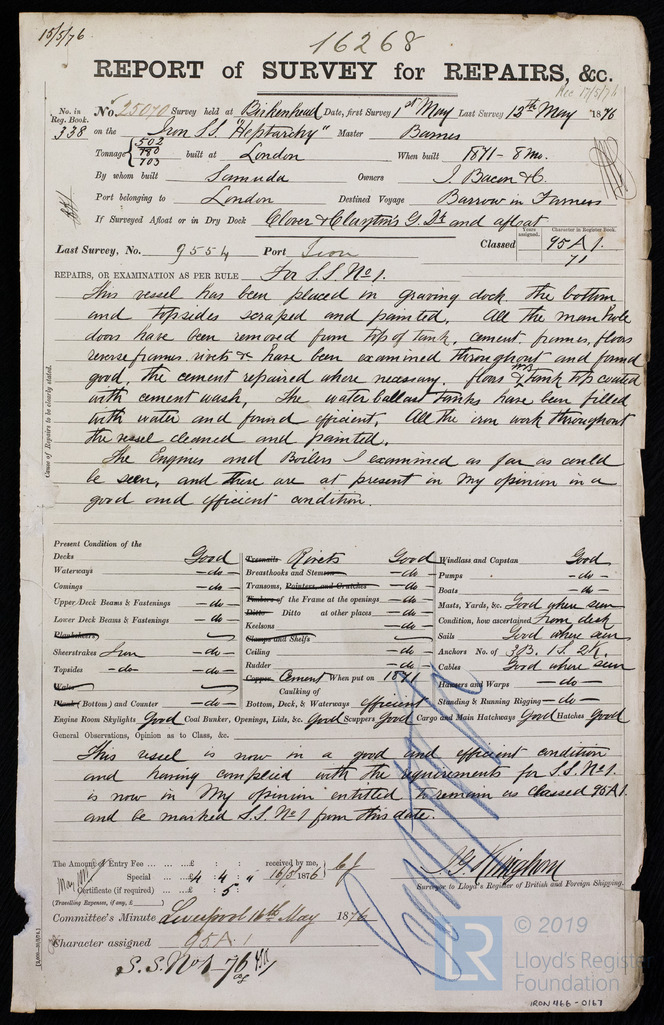 15/5/76
16268
REPORT of SURVEY for REPAIRS, &c.
Rec 17/5/76
No. in Reg. Book. No. 25070 Survey held at Birkenhead Date, first Survey 1st May Last Survey 12th May 1876
338 on the Iron S.S. "Heptarchy" Master Barnes
Tonnage 502 780 703 built at London When built 1871 - 8 Mo.
By whom built Samuda Owners J. Bacon & Co
Port belonging to London Destined Voyage Barrow in Furness
If Surveyed Afloat or in Dry Dock Clover & Clayton's G. Dk and afloat
Last Survey, No. 9554 Port Iron Classed Years assigned. Character in Register Book. 95 A 1. 71
REPAIRS, OR EXAMINATION AS PER RULE For S.S. No 1.
Cause of Repairs to be clearly stated.
This vessel has been placed in graving dock the bottom
and topsides scraped and painted. All the man hole
doors have been removed from top of tank, cement, frames, floors
reverse frames, rivets &c have been examined throughout and found
good, the cement repaired where necessary. floors & tank top coated
with cement wash, The water ballast tanks have been filled
with water and found efficient, All the iron work throughout
the vessel cleaned and painted.
The Engines and Boilers I examined as far as could
be seen, and these are at present in my opinion in a
good and efficient condition.
Present Condition of the
Decks Good Treenails Rivets Good Windlass and Capstan Good
Waterways - do - Breasthooks and Stemson - do - Pumps - do -
Comings - do - Transoms, Pointers, and Crutches - do - Boats - do -
Upper Deck Beams & Fastenings - do - Timbers of the Frame at the openings - do - Masts, Yards, &c. Good where seen
Lower Deck Beams & Fastenings - do - Ditto Ditto at other places - do - Condition, how ascertained From deck
Plansheers Keelsons - do - Sails Good where seen
Sheerstrakes Iron - do - Clamps and Shelfs Anchors No. of 3 B. 1 S. 2 K.
Topsides - do - - do - Ceiling - do - Cables Good where seen
Wales Rudder - do - Hawsers and Warps - do -
Plank (Bottom) and Counter - do - Copper Cement When put on 1871 Standing & Running Rigging - do -
Caulking of Bottom, Deck, & Waterways efficient
Engine Room Skylights Good Coal Bunker, Openings, Lids, &c. Good Scuppers Good Cargo and Main Hatchways Good Hatches Good
General Observations, Opinion as to Class, &c.
This vessel is now in a good and efficient condition
and having complied with the requirements for S.S. No 1.
is now in my opinion entitled to remain as classed 95 A 1.
and be marked S.S. No 1 from this date.
The Amount of Entry Fee ... ... £ : : received by me,
Special ... ... £ 4 : 4 : " 16/5/1876
Certificate (if required) .. £ : 5 :
(Travelling Expenses, if any, £ )
J G Kinghorn
Surveyor to Lloyd's Register of British and Foreign Shipping.
Committee's Minute Liverpool 16th May 1876
Character assigned 95 A 1
S.S. No 1 - 76
© 2019
LR
Lloyd's Register
Foundation
IRON 466 - 0167